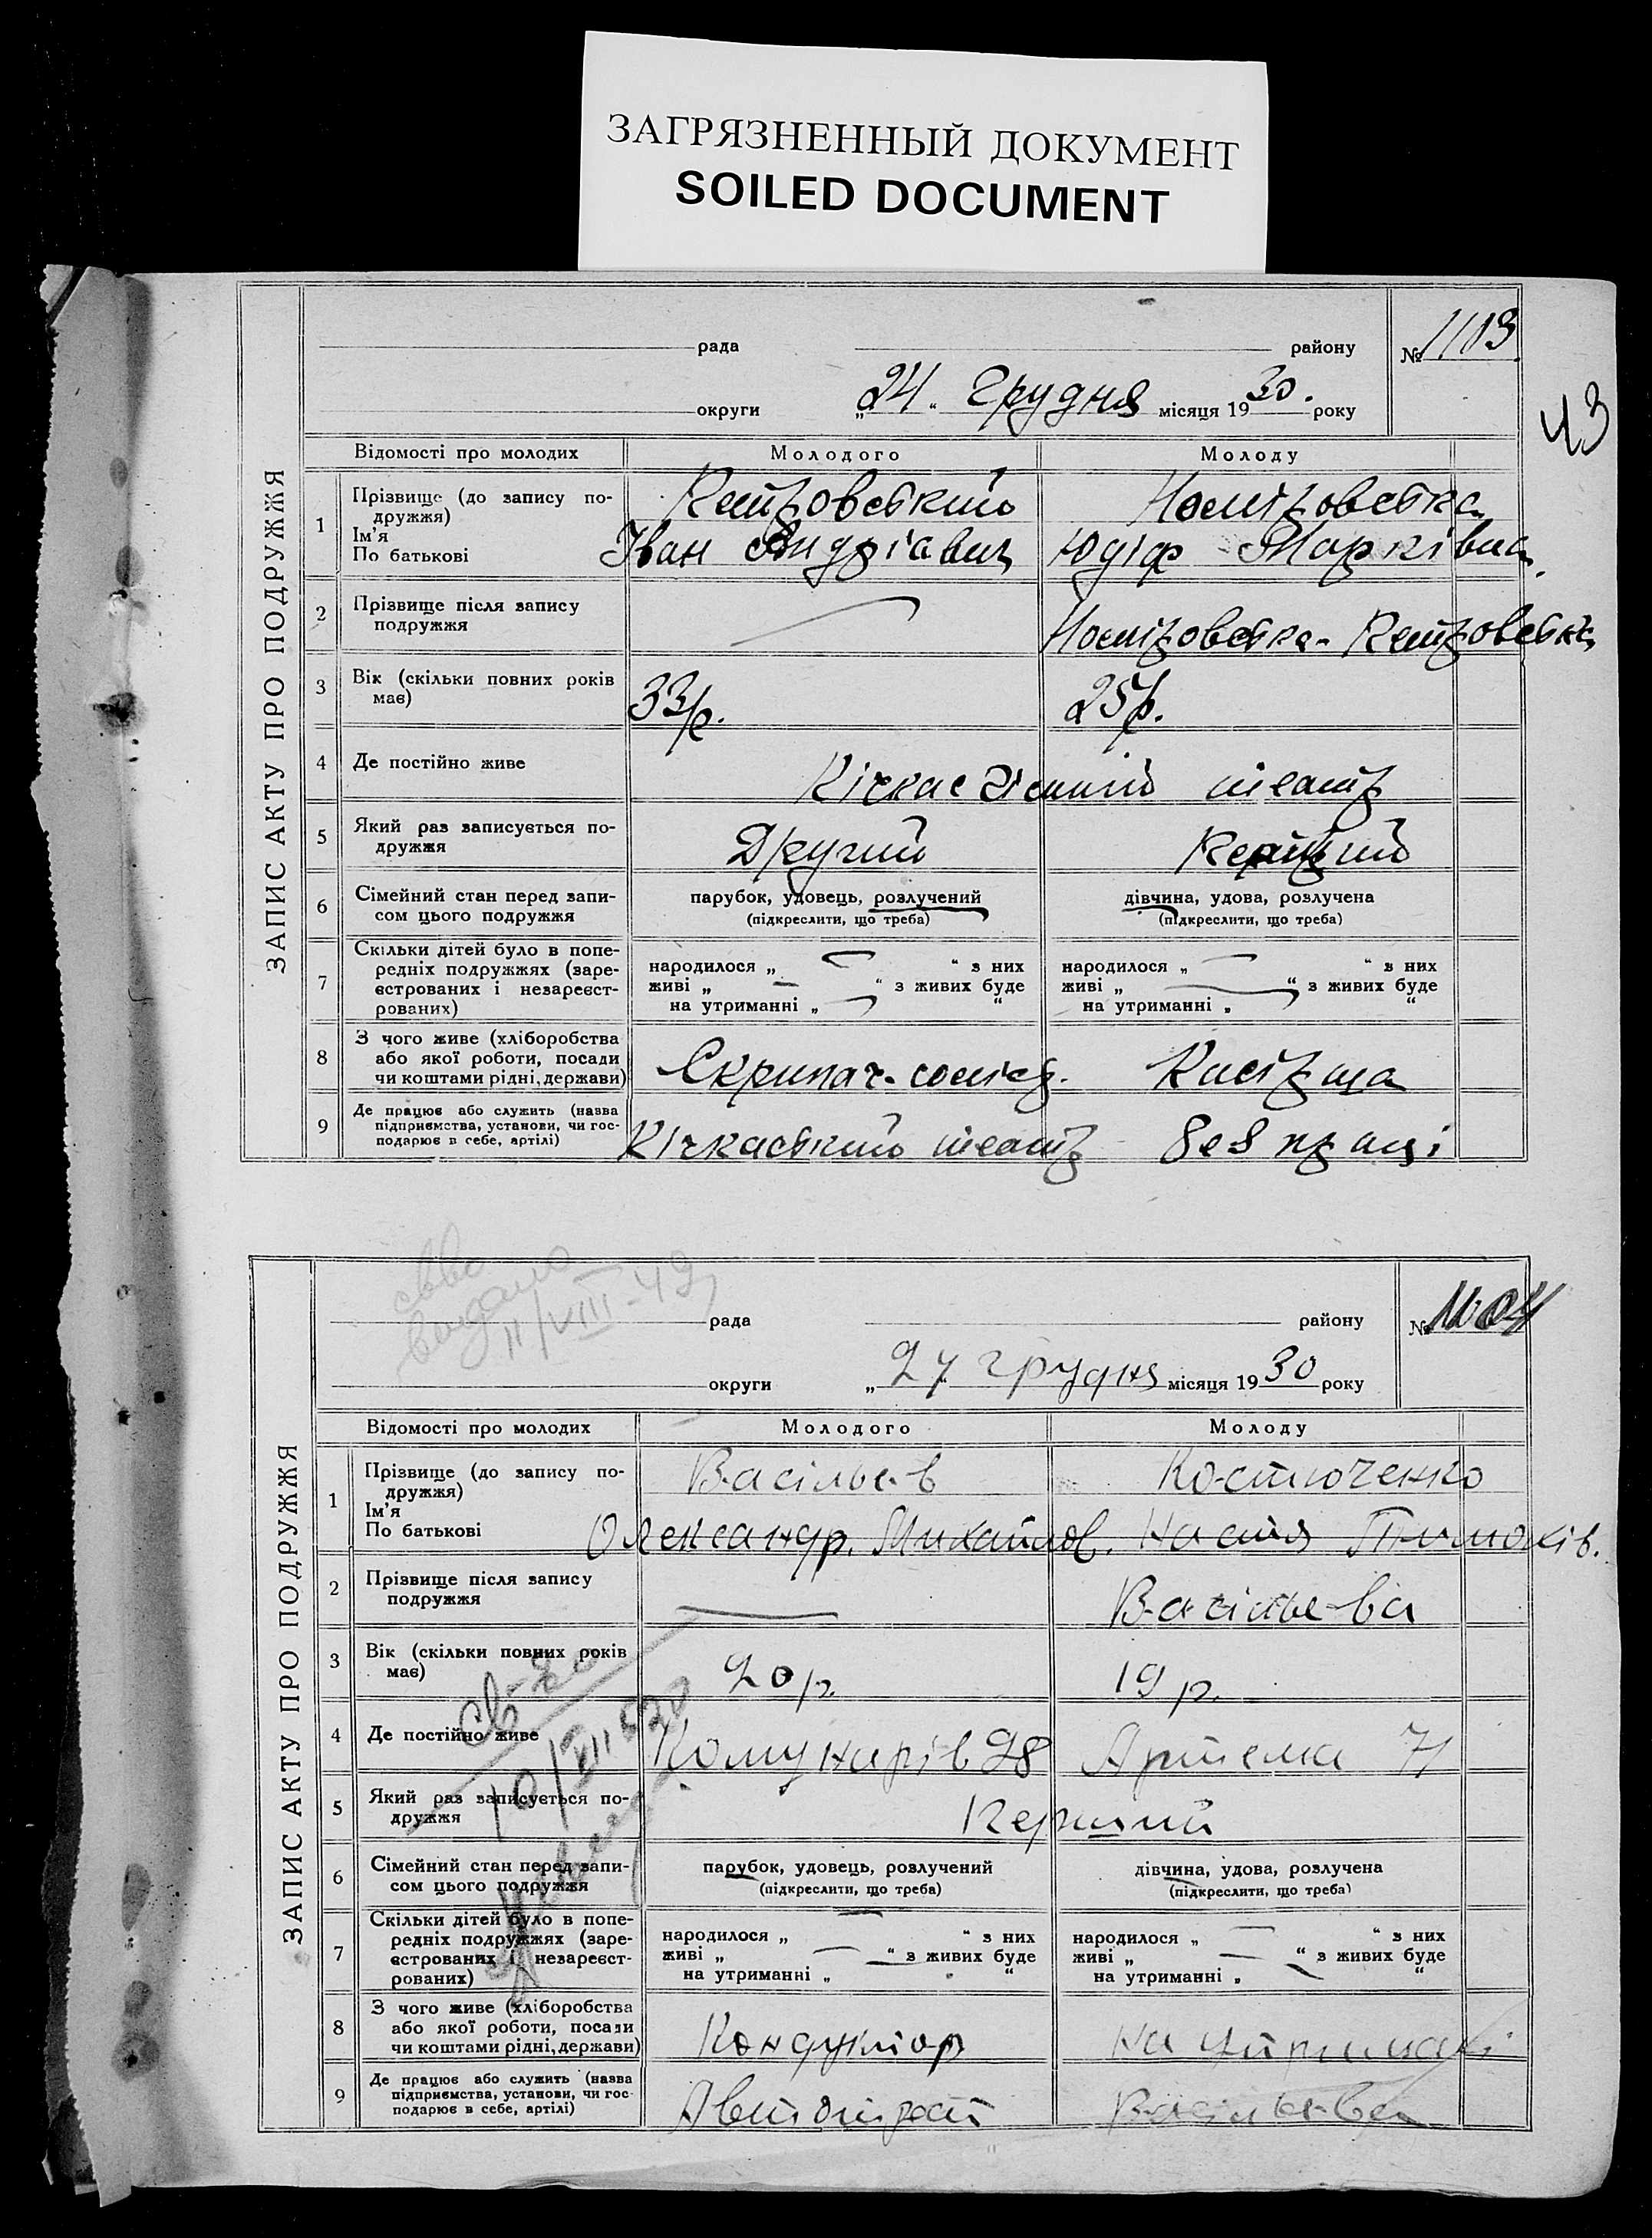 ЗАГРЯЗНЕННЫЙ ДОКУМЕНТ
SOILED DOCUMENT
ЗАПИС АКТУ ПРО ПОДРУЖЖЯ
рада району № 1103
округи „24“ Грудня місяця 1930. року
43
Відомості про молодих Молодого Молоду
1 Прізвище (до запису по-
дружжя)
Ім'я
По батькові
Петровський
Іван Андріавич Юдіф Марківна
2 Прізвище після запису
подружжя
3 Вік (скільки повних років
має)
33 р. 25 р.
4 Де постійно живе
Кічкас театр
5 Який раз записується по-
дружжя
Другий Перший
6 Сімейний стан перед запи-
сом цього подружжя
парубок, удовець, розлучений
(підкреслити, що треба)
дівчина, удова, розлучена
(підкреслити, що треба)
7 Скільки дітей було в попе-
редніх подружжях (заре-
єстрованих і незареєст-
рованих)
народилося „ “ з них
живі „ “ з живих буде
на утриманні „ “
народилося „ “ з них
живі „ “ з живих буде
на утриманні „ “
8 З чого живе (хліборобства
або якої роботи, посади
чи коштами рідні, держави)
Скрипач-соліст. Касірша
9 Де працює або служить (назва
підприємства, установи, чи гос-
подарює в себе, артілі)
Кічкаський театр без праці
видано
11/VIII-49
ЗАПИС АКТУ ПРО ПОДРУЖЖЯ
рада району № 1104
округи „27 грудня місяця 1930 року
Відомості про молодих Молодого Молоду
1 Прізвище (до запису по-
дружжя)
Ім'я
По батькові
Васільєв Костюченко
Олександр. Михайлов. Настя Тимохів.
2 Прізвище після запису
подружжя
Васільєва
3 Вік (скільки повних років
має)
20 р. 19 р.
4 Де постійно живе
Комунарів 28 Артема 71
5 Який раз записується по-
дружжя
Перший
6 Сімейний стан перед запи-
сом цього подружжя
парубок, удовець, розлучений
(підкреслити, що треба)
дівчина, удова, розлучена
(підкреслити, що треба)
7 Скільки дітей було в попе-
редніх подружжях (заре-
єстрованих і незареєст-
рованих)
народилося „ “ з них
живі „ “ з живих буде
на утриманні „ “
народилося „ “ з них
живі „ “ з живих буде
на утриманні „ “
8 З чого живе (хліборобства
або якої роботи, посади
чи коштами рідні, держави)
Кондуктор на утримані
9 Де працює або служить (назва
підприємства, установи, чи гос-
подарює в себе, артілі)
Автотрест Васільєва